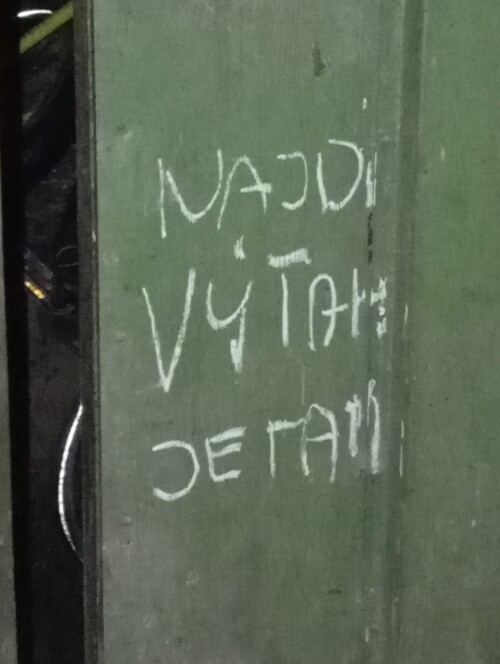 NAJDI
VÝTAH
JE TAM